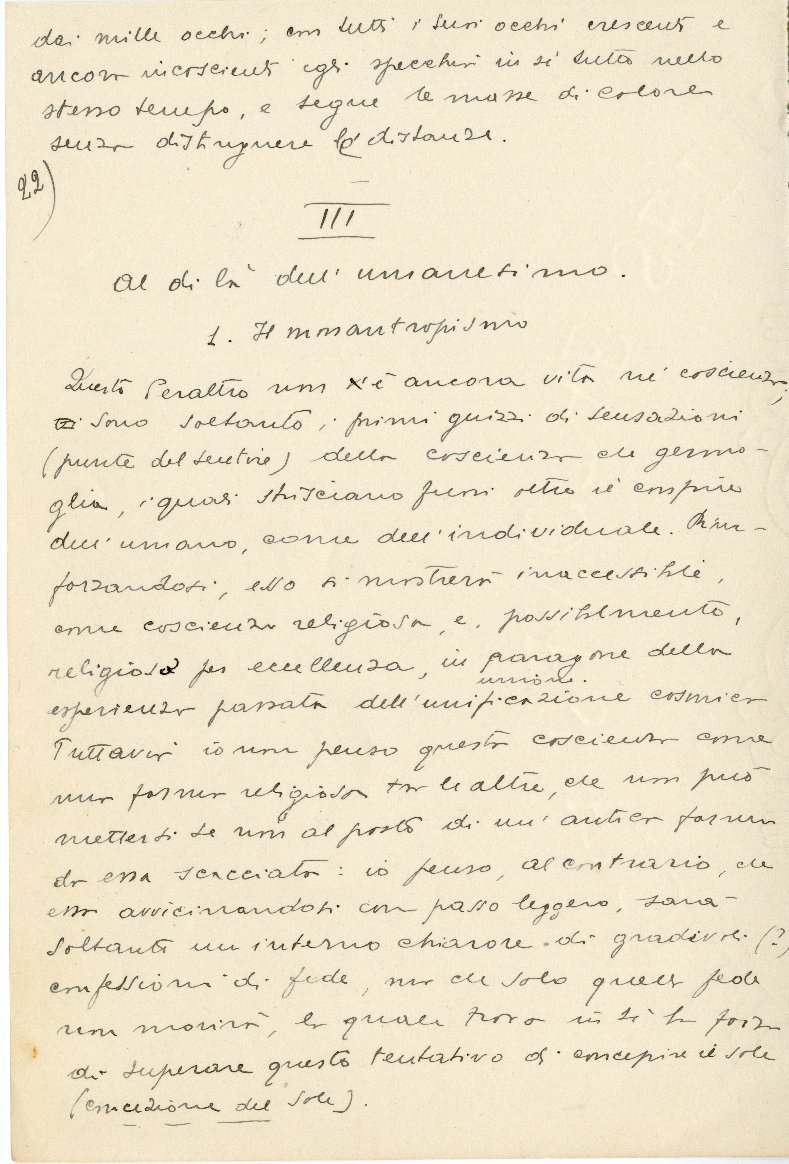 dai mille occhi; con tutti i suoi occhi crescenti e
ancora incoscienti egli specchia in sì tutto nello
stesso tempo, e segue le masse di colore
senza distinguere le distanze.
22)
III
Al di là dell'umanesimo.
1. Il monantropismo
Questo Peraltro non è ancora vita né coscienza;
sono soltanto i primi guizzi di sensazioni
(punte del sentire) della coscienza che germo-
glia, i quali strisciano fuori oltre il confine
dell'umano, come dell'individuale. Rin-
forzandosi, esso si mostrerà inaccessibile,
come coscienza religiosa, e, possibilmente,
religiosa per eccellenza, in paragone della
unione.
esperienza passata dell'unificazione cosmica
Tuttavia io non penso questa coscienza come
una forma religiosa tra le altre, che non può
mettersi se non al posto di un'antica forma
da essa scacciata: io penso, al contrario, che
essa avvicinandosi con passo leggero, sarà
soltanto un interno chiarore di gradevoli (?)
confessioni di fede, ma che solo quella fede
non morirà, la quale trova in sé la forza
di superare questo tentativo di concepire il sole
(concezione del Sole).